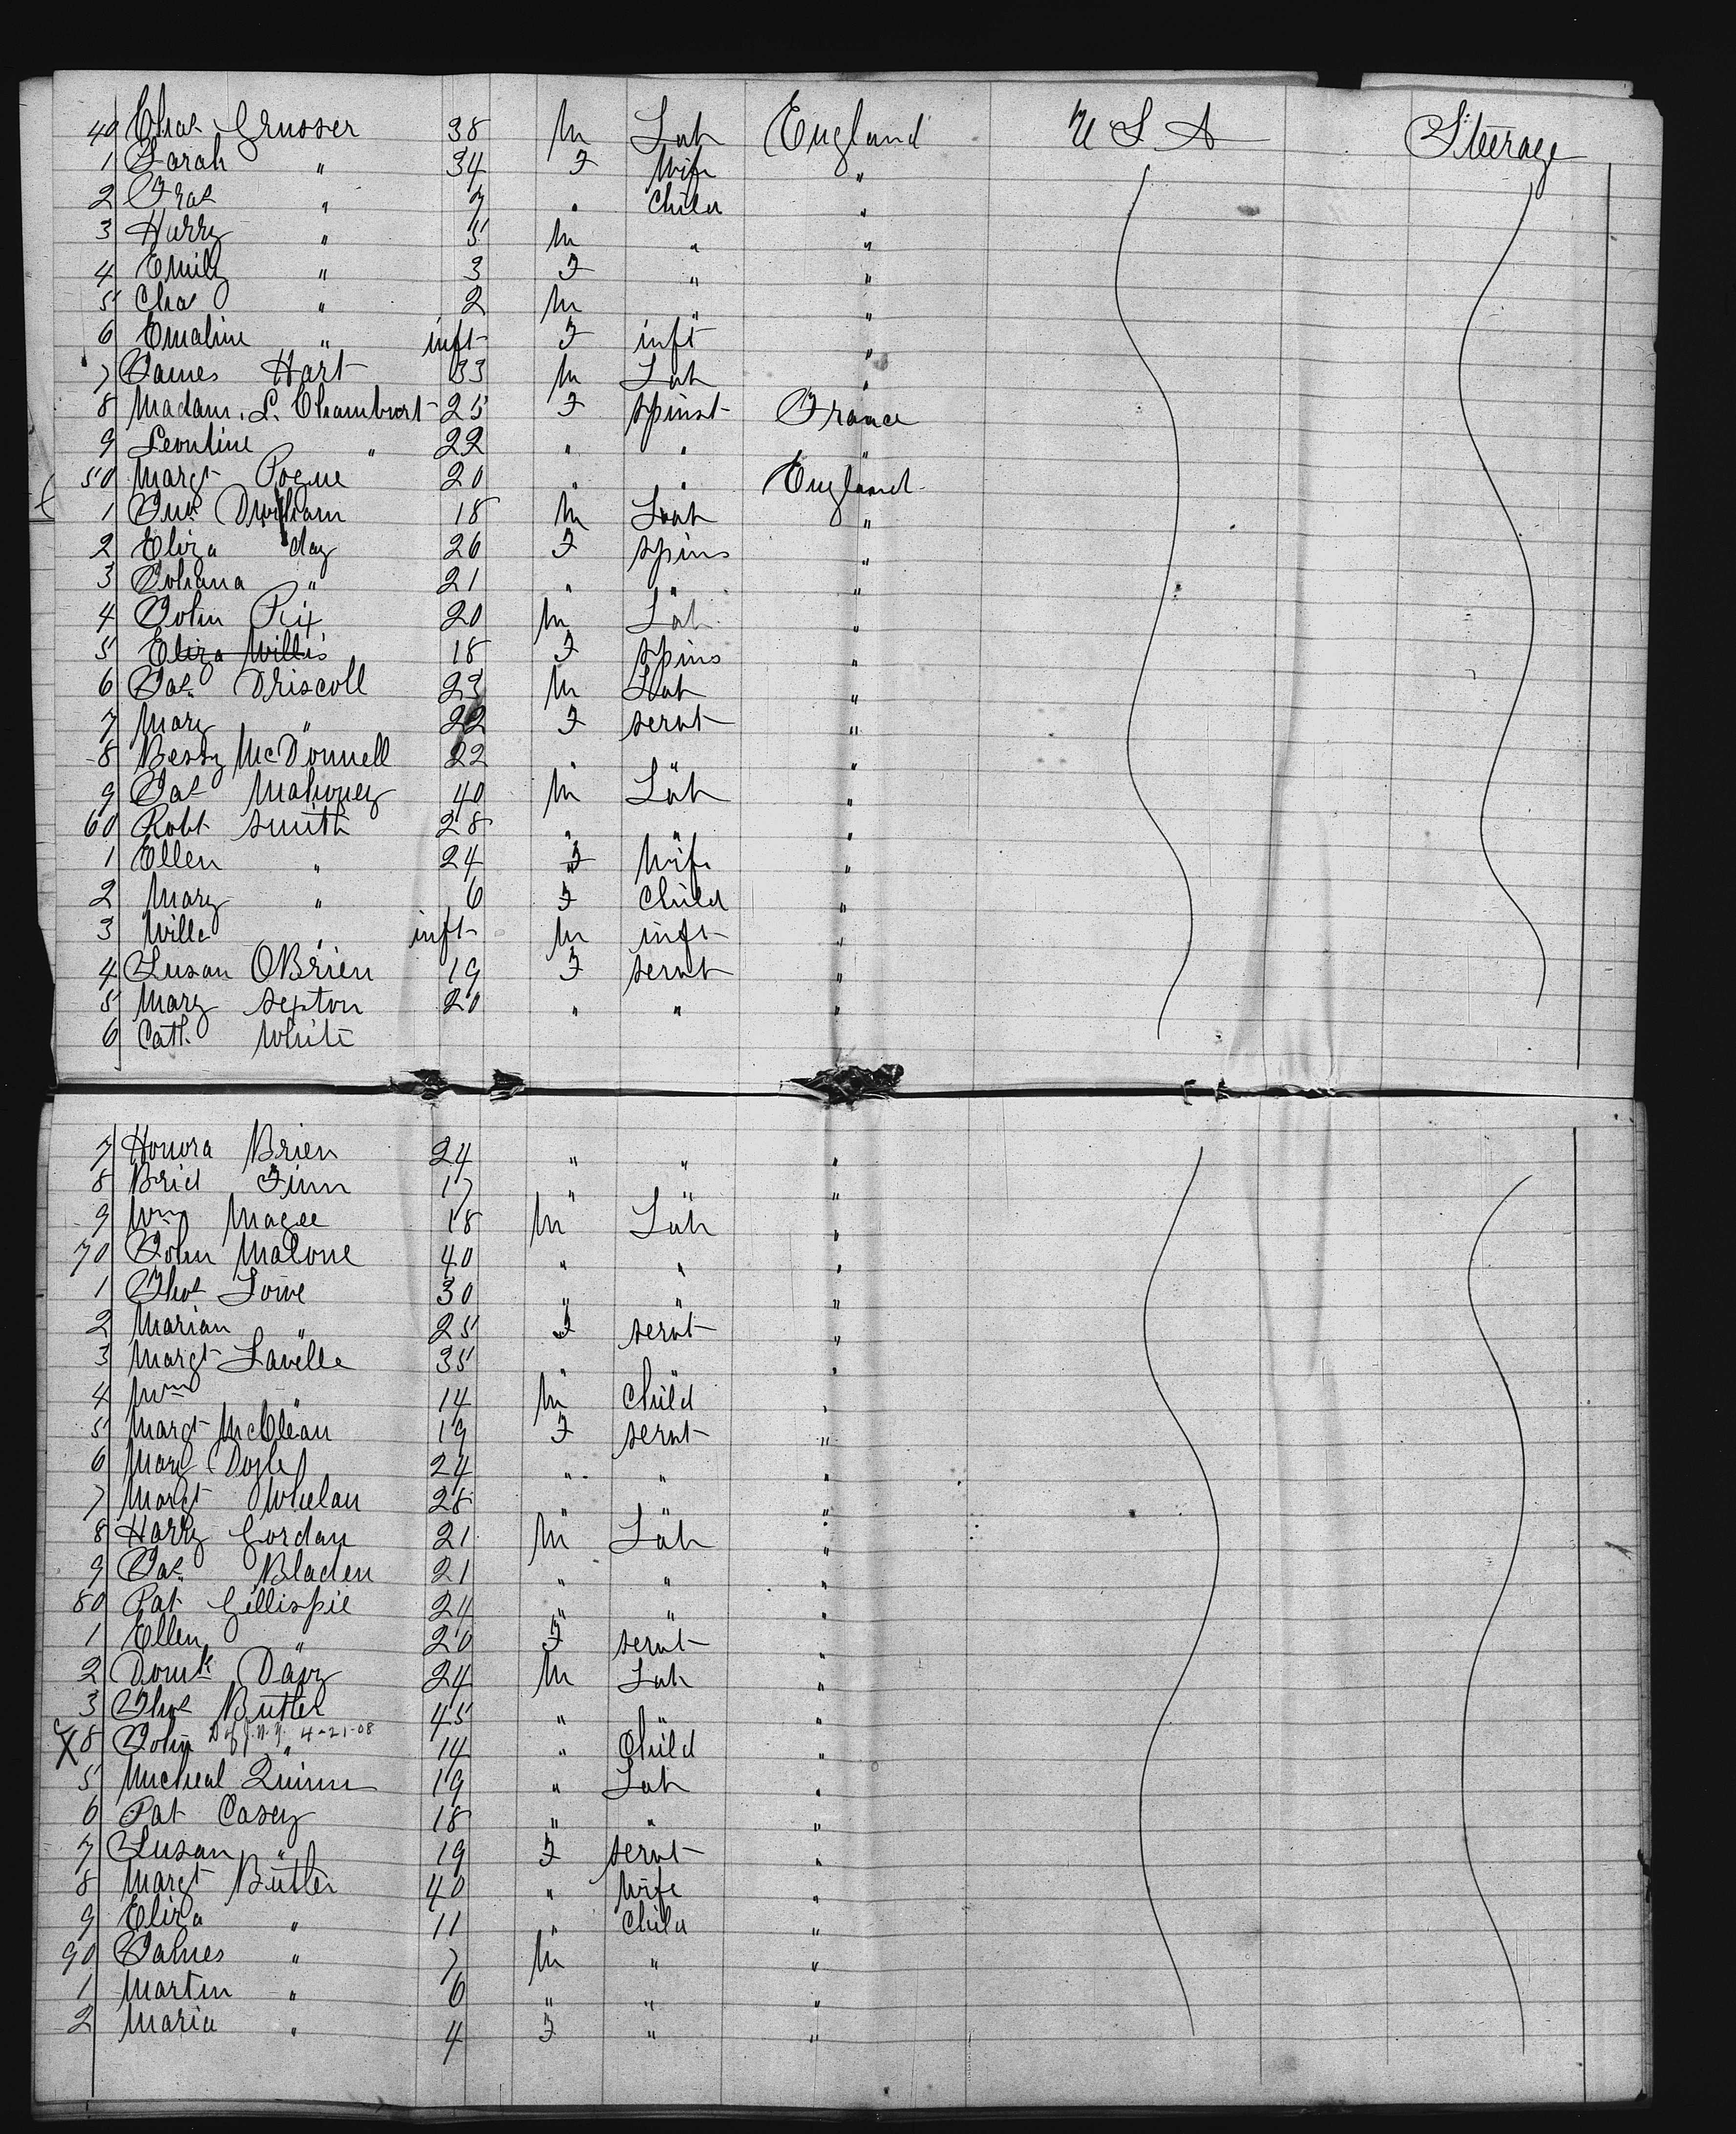 40 Chas Grusser 38 M Lab England U S A Steerage
1 Sarah " 34 F Wife "
2 Fras " 7 " Child "
3 Harry " 5 M " "
4 Emily " 3 F " "
5 Chas " 2 M " "
6 Emaline " inft F inft "
7 James Hart 33 M Lab "
8 Madam. L. Chambert 25 F spinst France
9 Leontine " 22 " " "
50 Margt Pogue 20 " " England
1 Jno 18 M Lab "
2 Eliza day 26 F spins "
3 Johana " 21 " " "
4 John Rix 20 M Lab "
5 Eliza Willis 18 F spins "
6 Jas. Driscoll 23 M Lab "
7 Mary " 22 F servt "
8 Bessy McDonnell 22 " "
9 Jas Mahoney 40 M Lab "
60 Robt Smith 28 " " "
1 Ellen " 24 F Wife "
2 Mary " 6 F Child "
3 Willie " inft M inft "
4 Susan OBrien 19 F servt "
5 Mary Sexton 20 " " "
6 Cath. White
7 Honora Brien 24 " " "
8 Brid Finn 17 " " "
9 Wm Magee 18 M Lab "
70 John Malone 40 " " "
1 Thos Lowe 30 " " "
2 Marian " 25 F servt "
3 Margt Lavelle 35 " "
4 Wm " 14 M Child "
5 Margt McClean 19 F servt "
6 Mary Doyle 24 " " "
7 Margt Whelan 28 " "
8 Harry Gordan 21 M Lab "
9 Jas. Bladen 21 " " "
80 Pat Gillispie 24 " " "
1 Ellen " 20 F servt "
2 Domk Davy 24 M Lab "
3 Thos Butler 45 " " "
X 8 John " 4-21-08 14 " Child "
5 Micheal Quinn 19 " Lab "
6 Pat Casey 18 " " "
7 Susan " 19 F servt "
8 Margt Butler 40 " Wife "
9 Eliza " 11 " Child "
90 James " 7 M " "
1 Martin " 6 " " "
2 Maria " 4 F " "